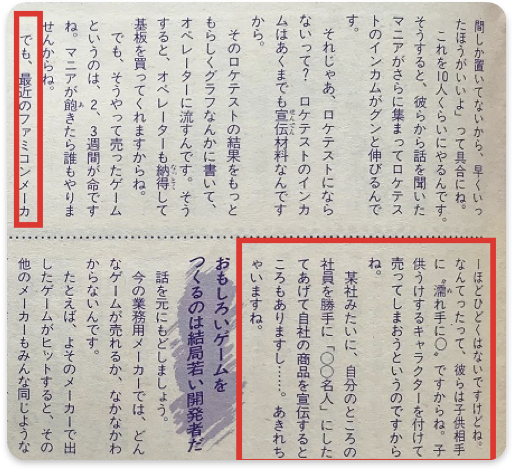 間しか置いてないから、早くいっ
たほうがいいよ」って具合にね。
これを10人くらいにやるんです。
そうすると、彼らから話を聞いた
マニアがさらに集まってロケテス
トのインカムがグンと伸びるんで
す。
それじゃあ、ロケテストになら
ないって？　ロケテストのインカ
ムはあくまでも宣伝材料なんです
から。
そのロケテストの結果をもっと
もらしくグラフなんかに書いて、
オペレーターに流すんです。そう
すると、オペレーターも納得して
基板を買ってくれますからね。
でも、そうやって売ったゲーム
というのは、2、3週間が命です
ね。マニアが飽きたら誰もやりま
せんからね。
でも、最近のファミコンメーカ
ーほどひどくはないですけどね。
なんてったって、彼らは子供相手
に〝濡れ手に〇〟ですからね。子
供うけするキャラクターを付けて
売ってしまおうというのですから
ね。
某社みたいに、自分のところの
社員を勝手に「〇〇名人」にした
てあげて自社の商品を宣伝すると
ころもありますし……。あきれち
ゃいますね。
おもしろいゲームを
つくるのは結局若い開発者だ
話を元にもどしましょう。
今の業務用メーカーでは、どん
なゲームが売れるか、なかなかわ
からないんです。
たとえば、よそのメーカーで出
したゲームがヒットすると、その
他のメーカーもみんな同じような